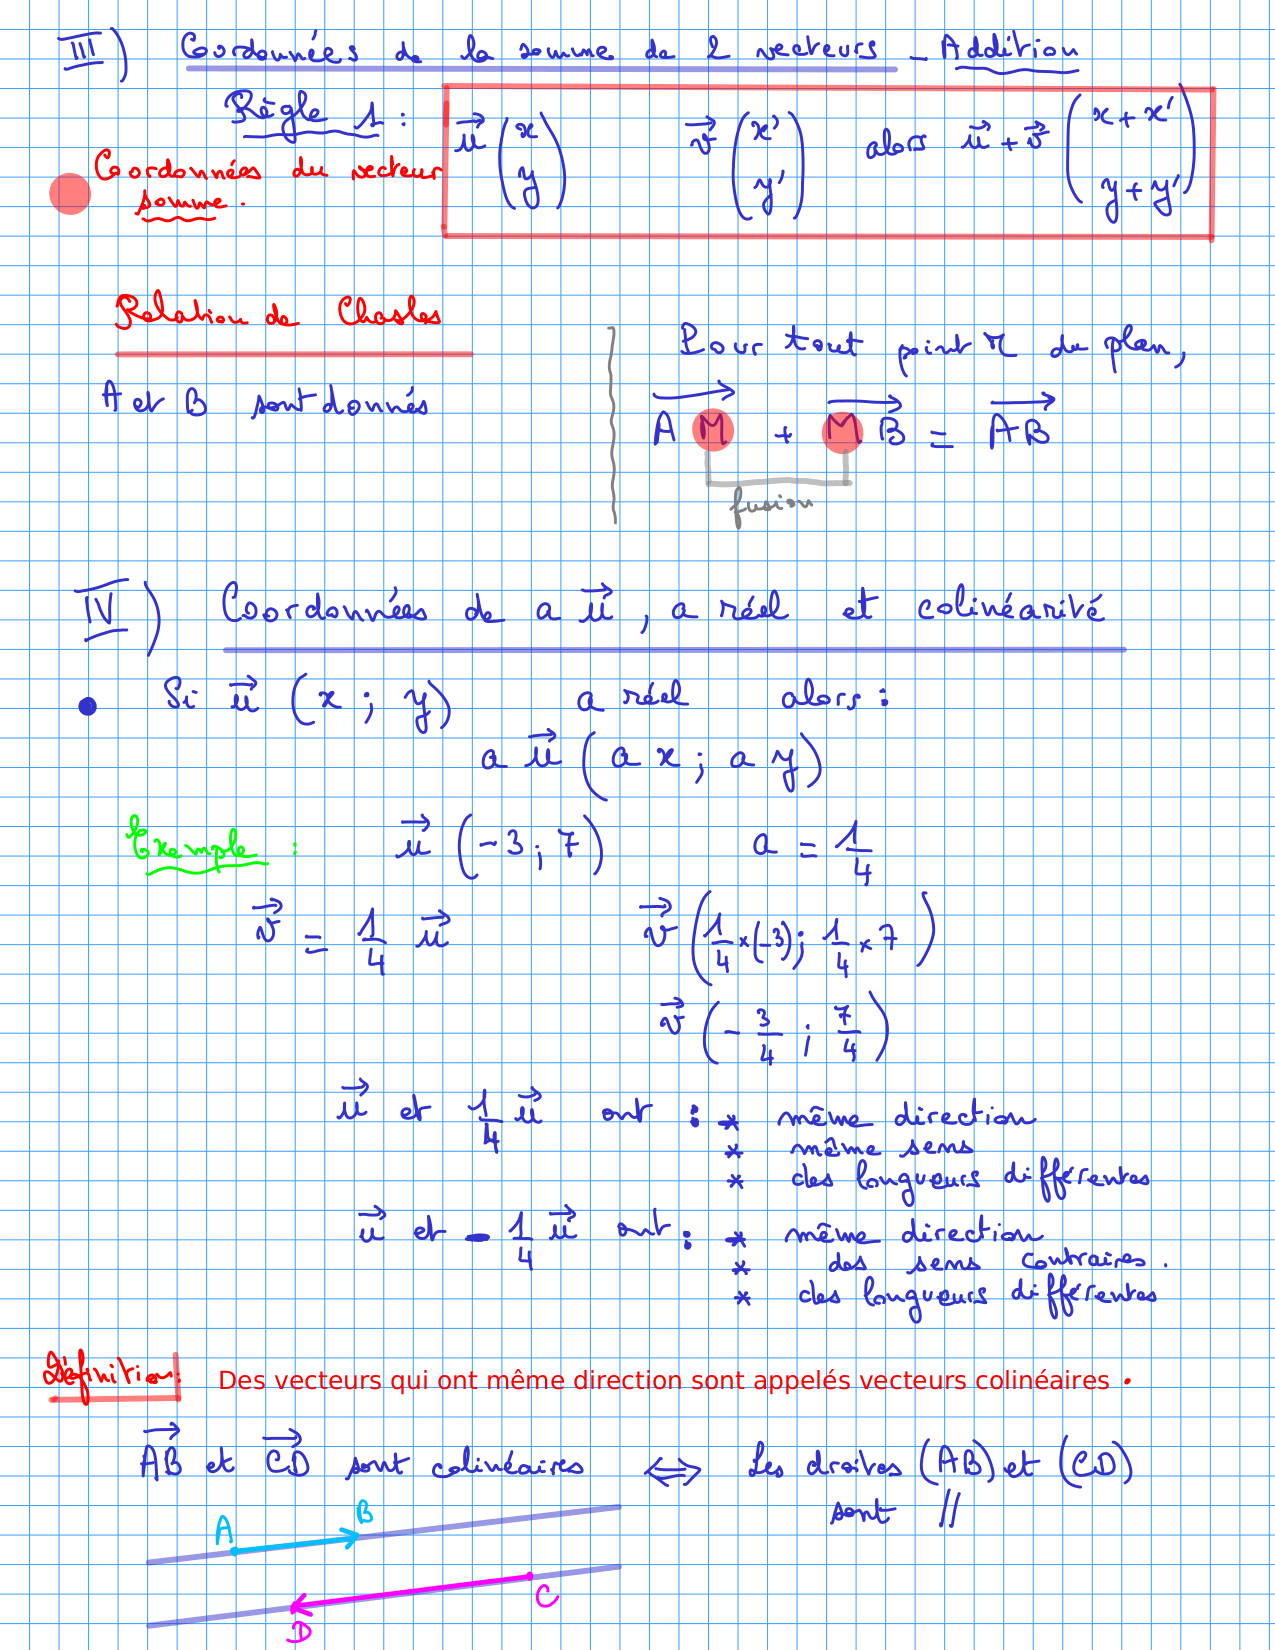 III) Coordonnées de la somme de 2 vecteurs - Addition
Règle 1 : u⃗ (x y) v⃗ (x' y') alors u⃗ + v⃗ (x + x' y + y')
Coordonnées du vecteur
somme.
Relation de Chasles
Pour tout point M du plan,
A et B sont donnés
AM + MB = AB
fusion
IV) Coordonnées de a u⃗, a réel et colinéarité
• Si u⃗ (x ; y) a réel alors :
a u⃗ (a x ; a y)
Exemple : u⃗ (-3 ; 7) a = 1/4
v⃗ = 1/4 u⃗ v⃗ (1/4 × (-3) ; 1/4 × 7)
v⃗ (- 3/4 ; 7/4)
u⃗ et 1/4 u⃗ ont : * même direction
* même sens
* des longueurs différentes
u⃗ et - 1/4 u⃗ ont : * même direction
* des sens contraires.
* des longueurs différentes
Définition: Des vecteurs qui ont même direction sont appelés vecteurs colinéaires .
AB et CD sont colinéaires ⇔ Les droites (AB) et (CD)
sont //
A B
C
D